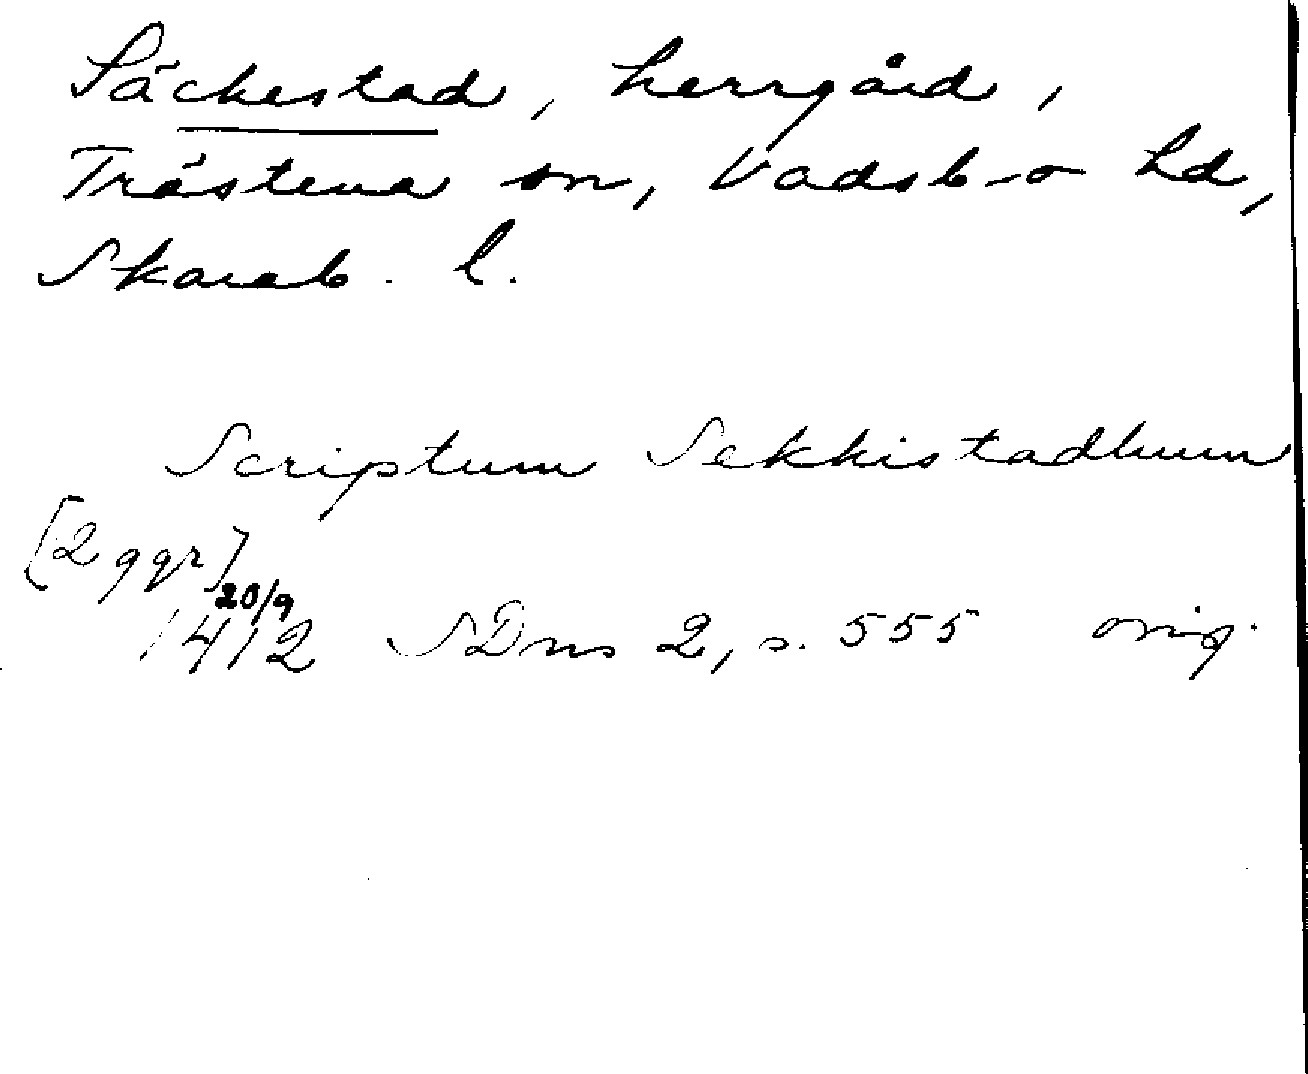 Säckestad, herrgård,
Trästena sn, Vadsbo hd,
Skarab. l.
Scriptum Sekkistadhum
[2 ggr]
20/9
1412 SDns 2, s. 555 orig.